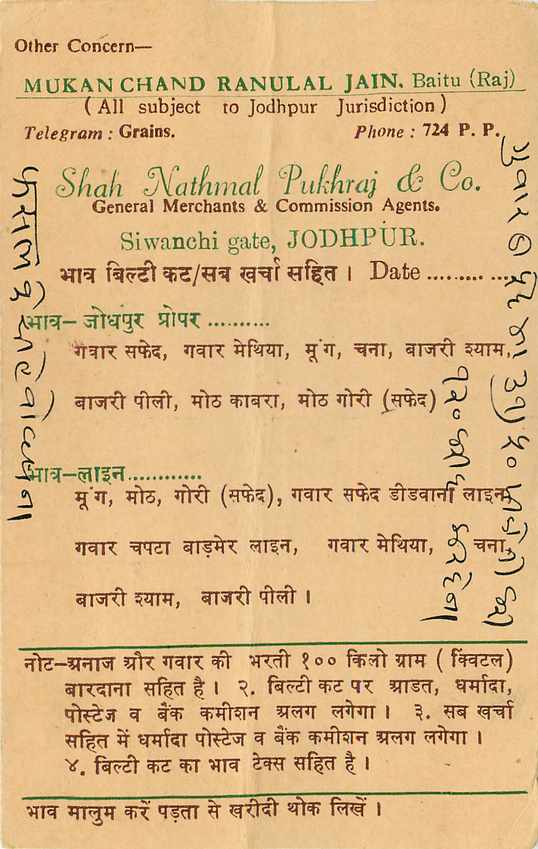 Other Concern—
MUKAN CHAND RANULAL JAIN. Baitu (Raj)
( All subject to Jodhpur Jurisdiction )
Telegram : Grains. Phone : 724 P. P.
Shah Nathmal Pukhraj & Co.
General Merchants & Commission Agents.
Siwanchi gate, JODHPUR.
भाव बिल्टी कट/सब खर्चा सहित । Date ............
भाव— जोधपुर प्रोपर ..........
गवार सफेद, गवार मेथिया, मूंग, चना, बाजरी श्याम,
बाजरी पीली, मोठ काबरा, मोठ गोरी (सफेद)
भाव—लाइन............
मूंग, मोठ, गोरी (सफेद), गवार सफेद डीडवाना लाइन,
गवार चपटा बाड़मेर लाइन, गवार मेथिया, चना,
बाजरी श्याम, बाजरी पीली ।
नोट—अनाज और गवार की भरती १०० किलो ग्राम ( क्विंटल )
बारदाना सहित है । २. बिल्टी कट पर आडत, धर्मादा,
पोस्टेज व बैंक कमीशन अलग लगेगा । ३. सब खर्चा
सहित में धर्मादा पोस्टेज व बैंक कमीशन अलग लगेगा ।
४. बिल्टी कट का भाव टेक्स सहित है ।
भाव मालुम करें पड़ता से खरीदी थोक लिखें ।